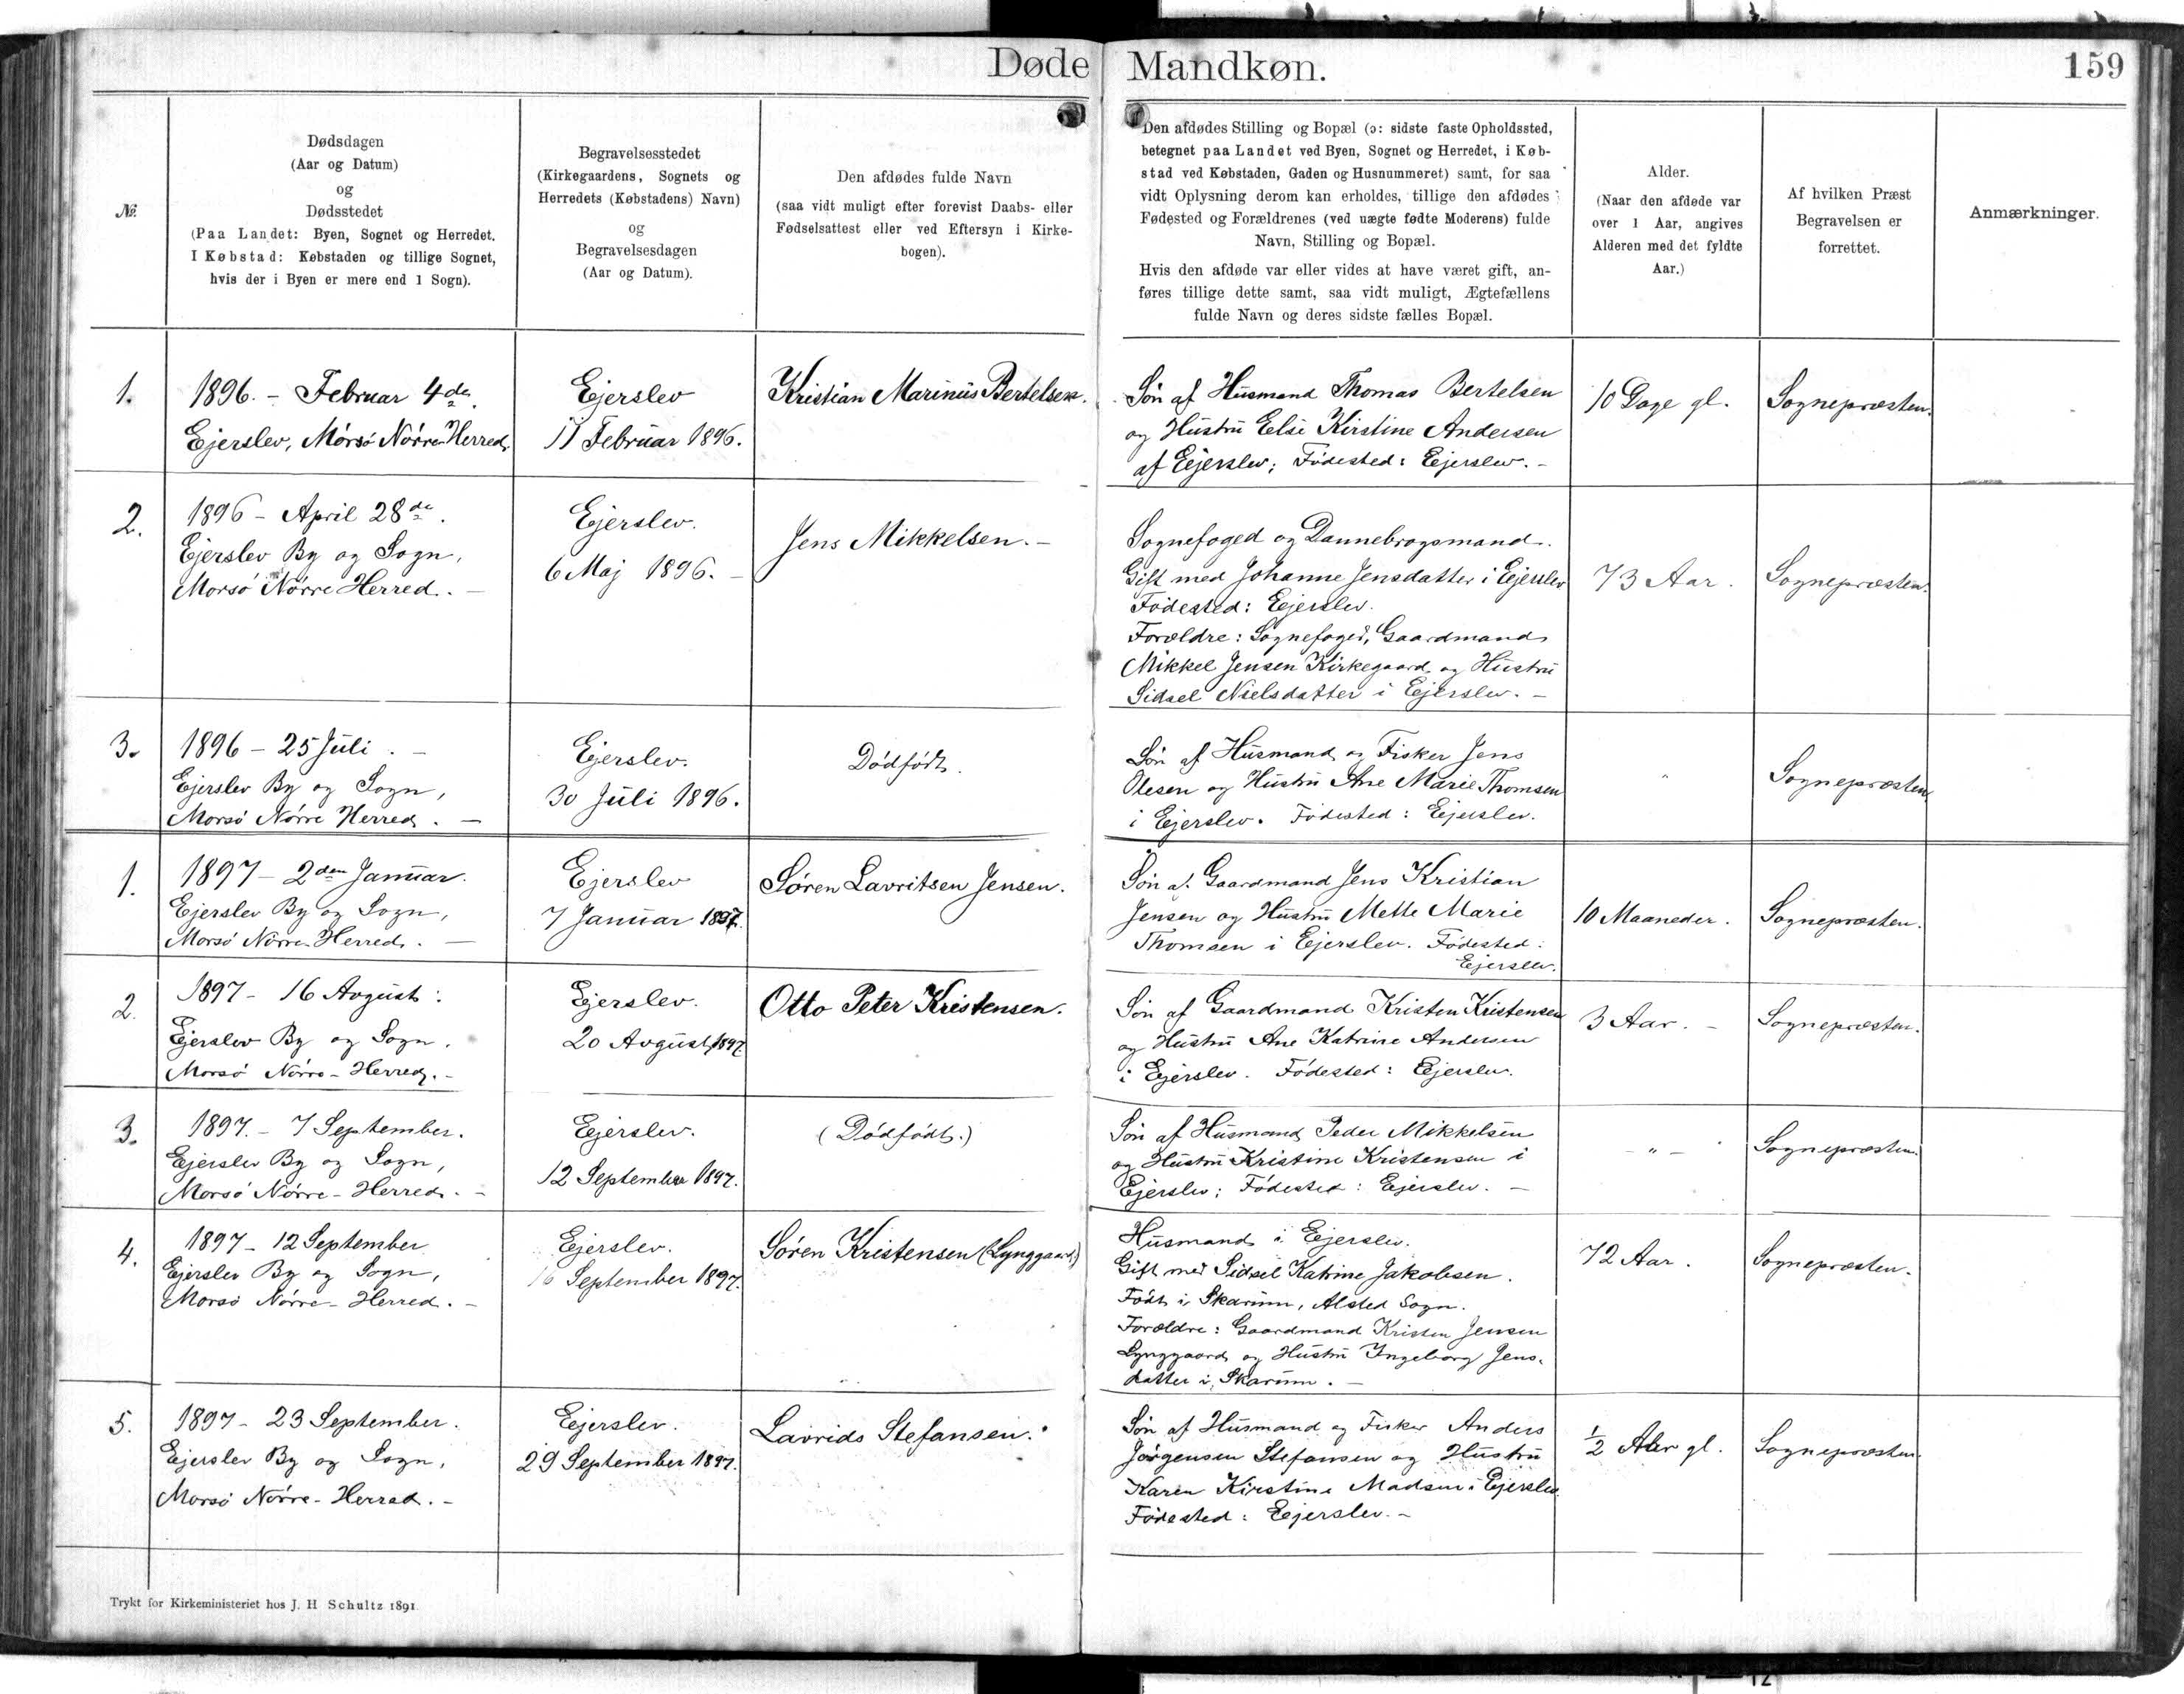 Døde Mandkøn.
159
№
Dødsdagen
(Aar og Datum)
og
Dødsstedet
(Paa Landet: Byen, Sognet og Herredet.
I Købstad: Købstaden og tillige Sognet,
hvis der i Byen er mere end 1 Sogn).
Begravelsesstedet
(Kirkegaardens, Sognets og
Herredets (Købstadens) Navn)
og
Begravelsesdagen
(Aar og Datum).
Den afdødes fulde Navn
(saa vidt muligt efter forevist Daabs- eller
Fødselsattest eller ved Eftersyn i Kirke-
bogen).
Den afdødes Stilling og Bopæl (ɔ: sidste faste Opholdssted,
betegnet paa Landet ved Byen, Sognet og Herredet, i Køb-
stad ved Købstaden, Gaden og Husnummeret) samt, for saa
vidt Oplysning derom kan erholdes, tillige den afdødes
Fødested og Forældrenes (ved uægte fødte Moderens) fulde
Navn, Stilling og Bopæl.
Hvis den afdøde var eller vides at have været gift, an-
føres tillige dette samt, saa vidt muligt, Ægtefællens
fulde Navn og deres sidste fælles Bopæl.
Alder.
(Naar den afdøde var
over 1 Aar, angives
Alderen med det fyldte
Aar.)
Af hvilken Præst
Begravelsen er
forrettet.
Anmærkninger.
1.
1896. - Februar 4de.
Ejerslev, Morsø Nørre Herred.
Ejerslev
11 Februar 1896.
Kristian Marinus Bertelsen.
Søn af Husmand Thomas Bertelsen
og Hustru Else Kirstine Andersen
af Ejerslev; Fødested: Ejerslev. -
10 Dage gl.
Sognepræsten.
2.
1896 - April 28de.
Ejerslev By og Sogn,
Morsø Nørre Herred. -
Ejerslev.
6 Maj 1896. -
Jens Mikkelsen. -
Sognefoged og Dannebrogsmand.
Gift med Johanne Jensdatter i Ejerslev
Fødested: Ejerslev.
Forældre: Sognefoged, Gaardmand
Mikkel Jensen Kirkegaard og Hustru
Sidsel Nielsdatter i Ejerslev. -
73 Aar.
Sognepræsten.
3.
1896 - 25 Juli. -
Ejerslev By og Sogn,
Morsø Nørre Herred. -
Ejerslev.
30 Juli 1896.
Dødfødt.
Søn af Husmand og Fisker Jens
Olesen og Hustru Ane Marie Thomsen
i Ejerslev. Fødested: Ejerslev.
"
Sognepræsten
1.
1897 - 2den Januar.
Ejerslev By og Sogn,
Morsø Nørre Herred. -
Ejerslev
7 Januar 1897.
Søren Lavritsen Jensen.
Søn af Gaardmand Jens Kristian
Jensen og Hustru Mette Marie
Thomsen i Ejerslev. Fødested:
Ejerslev.
10 Maaneder.
Sognepræsten.
2.
1897 - 16 Avgust:
Ejerslev By og Sogn,
Morsø Nørre - Herred. -
Ejerslev.
20 Avgust 1897
Otto Peter Kristensen.
Søn af Gaardmand Kristen Kristensen
og Hustru Ane Katrine Andersen
i Ejerslev. Fødested: Ejerslev.
3 Aar. -
Sognepræsten.
3.
1897. - 7 September.
Ejerslev By og Sogn,
Morsø Nørre - Herred. -
Ejerslev.
12 September 1897.
(Dødfødt.)
Søn af Husmand Peder Mikkelsen
og Hustru Kristine Kristensen i
Ejerslev; Fødested: Ejerslev. -
- " -
Sognepræsten.
4.
1897 - 12 September
Ejerslev By og Sogn,
Morsø Nørre - Herred. -
Ejerslev.
16 September 1897.
Søren Kristensen (Lynggaard)
Husmand i Ejerslev.
Gift med Sidsel Katrine Jakobsen.
Født i Skarum, Alsted Sogn.
Forældre: Gaardmand Kristen Jensen
Lynggaard og Hustru Ingeborg Jens-
datter i Skarum. -
72 Aar.
Sognepræsten.
5.
1897 - 23 September.
Ejerslev By og Sogn,
Morsø Nørre - Herred. -
Ejerslev.
29 September 1897.
Lavrids Stefansen.
Søn af Husmand og Fisker Anders
Jørgensen Stefansen og Hustru
Karen Kirstine Madsen i Ejerslev.
Fødested: Ejerslev. -
1/2 Aar gl.
Sognepræsten.
Trykt for Kirkeministeriet hos J. H Schultz 1891